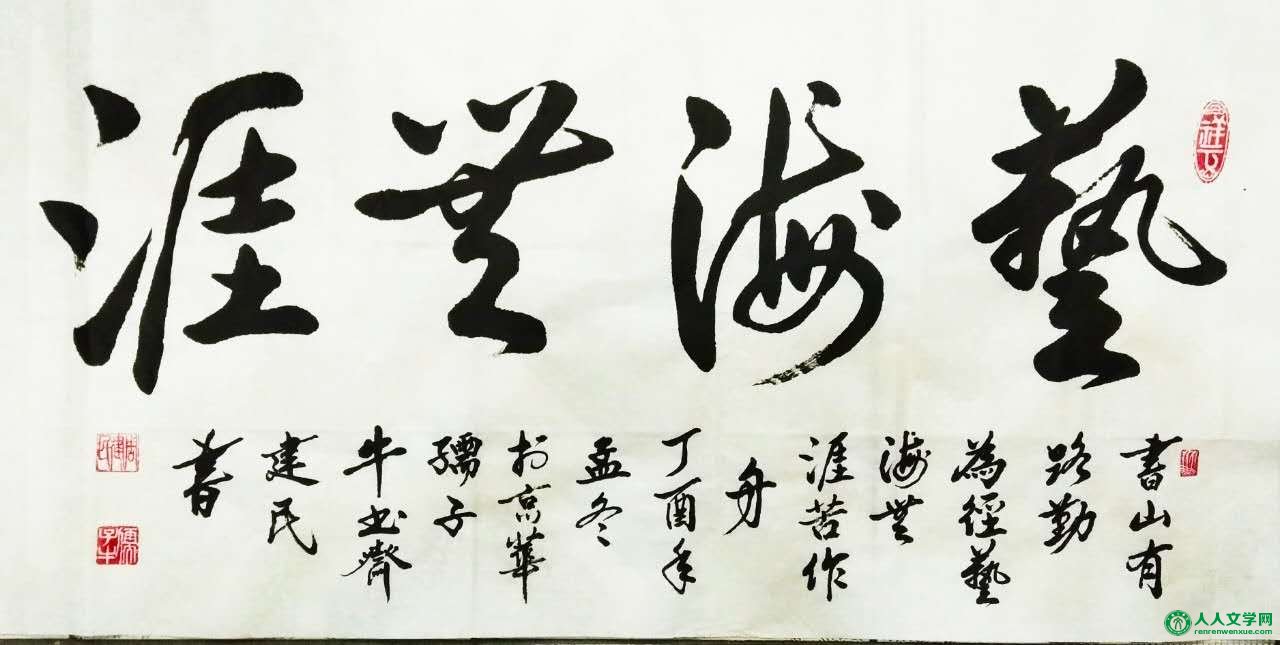 藝海無涯
書山有
路勤
為徑藝
海無
涯苦作
舟
丁酉年
孟冬
於京華
孺子
牛書齋
建民
書
人人文学网
renrenwenxue.com